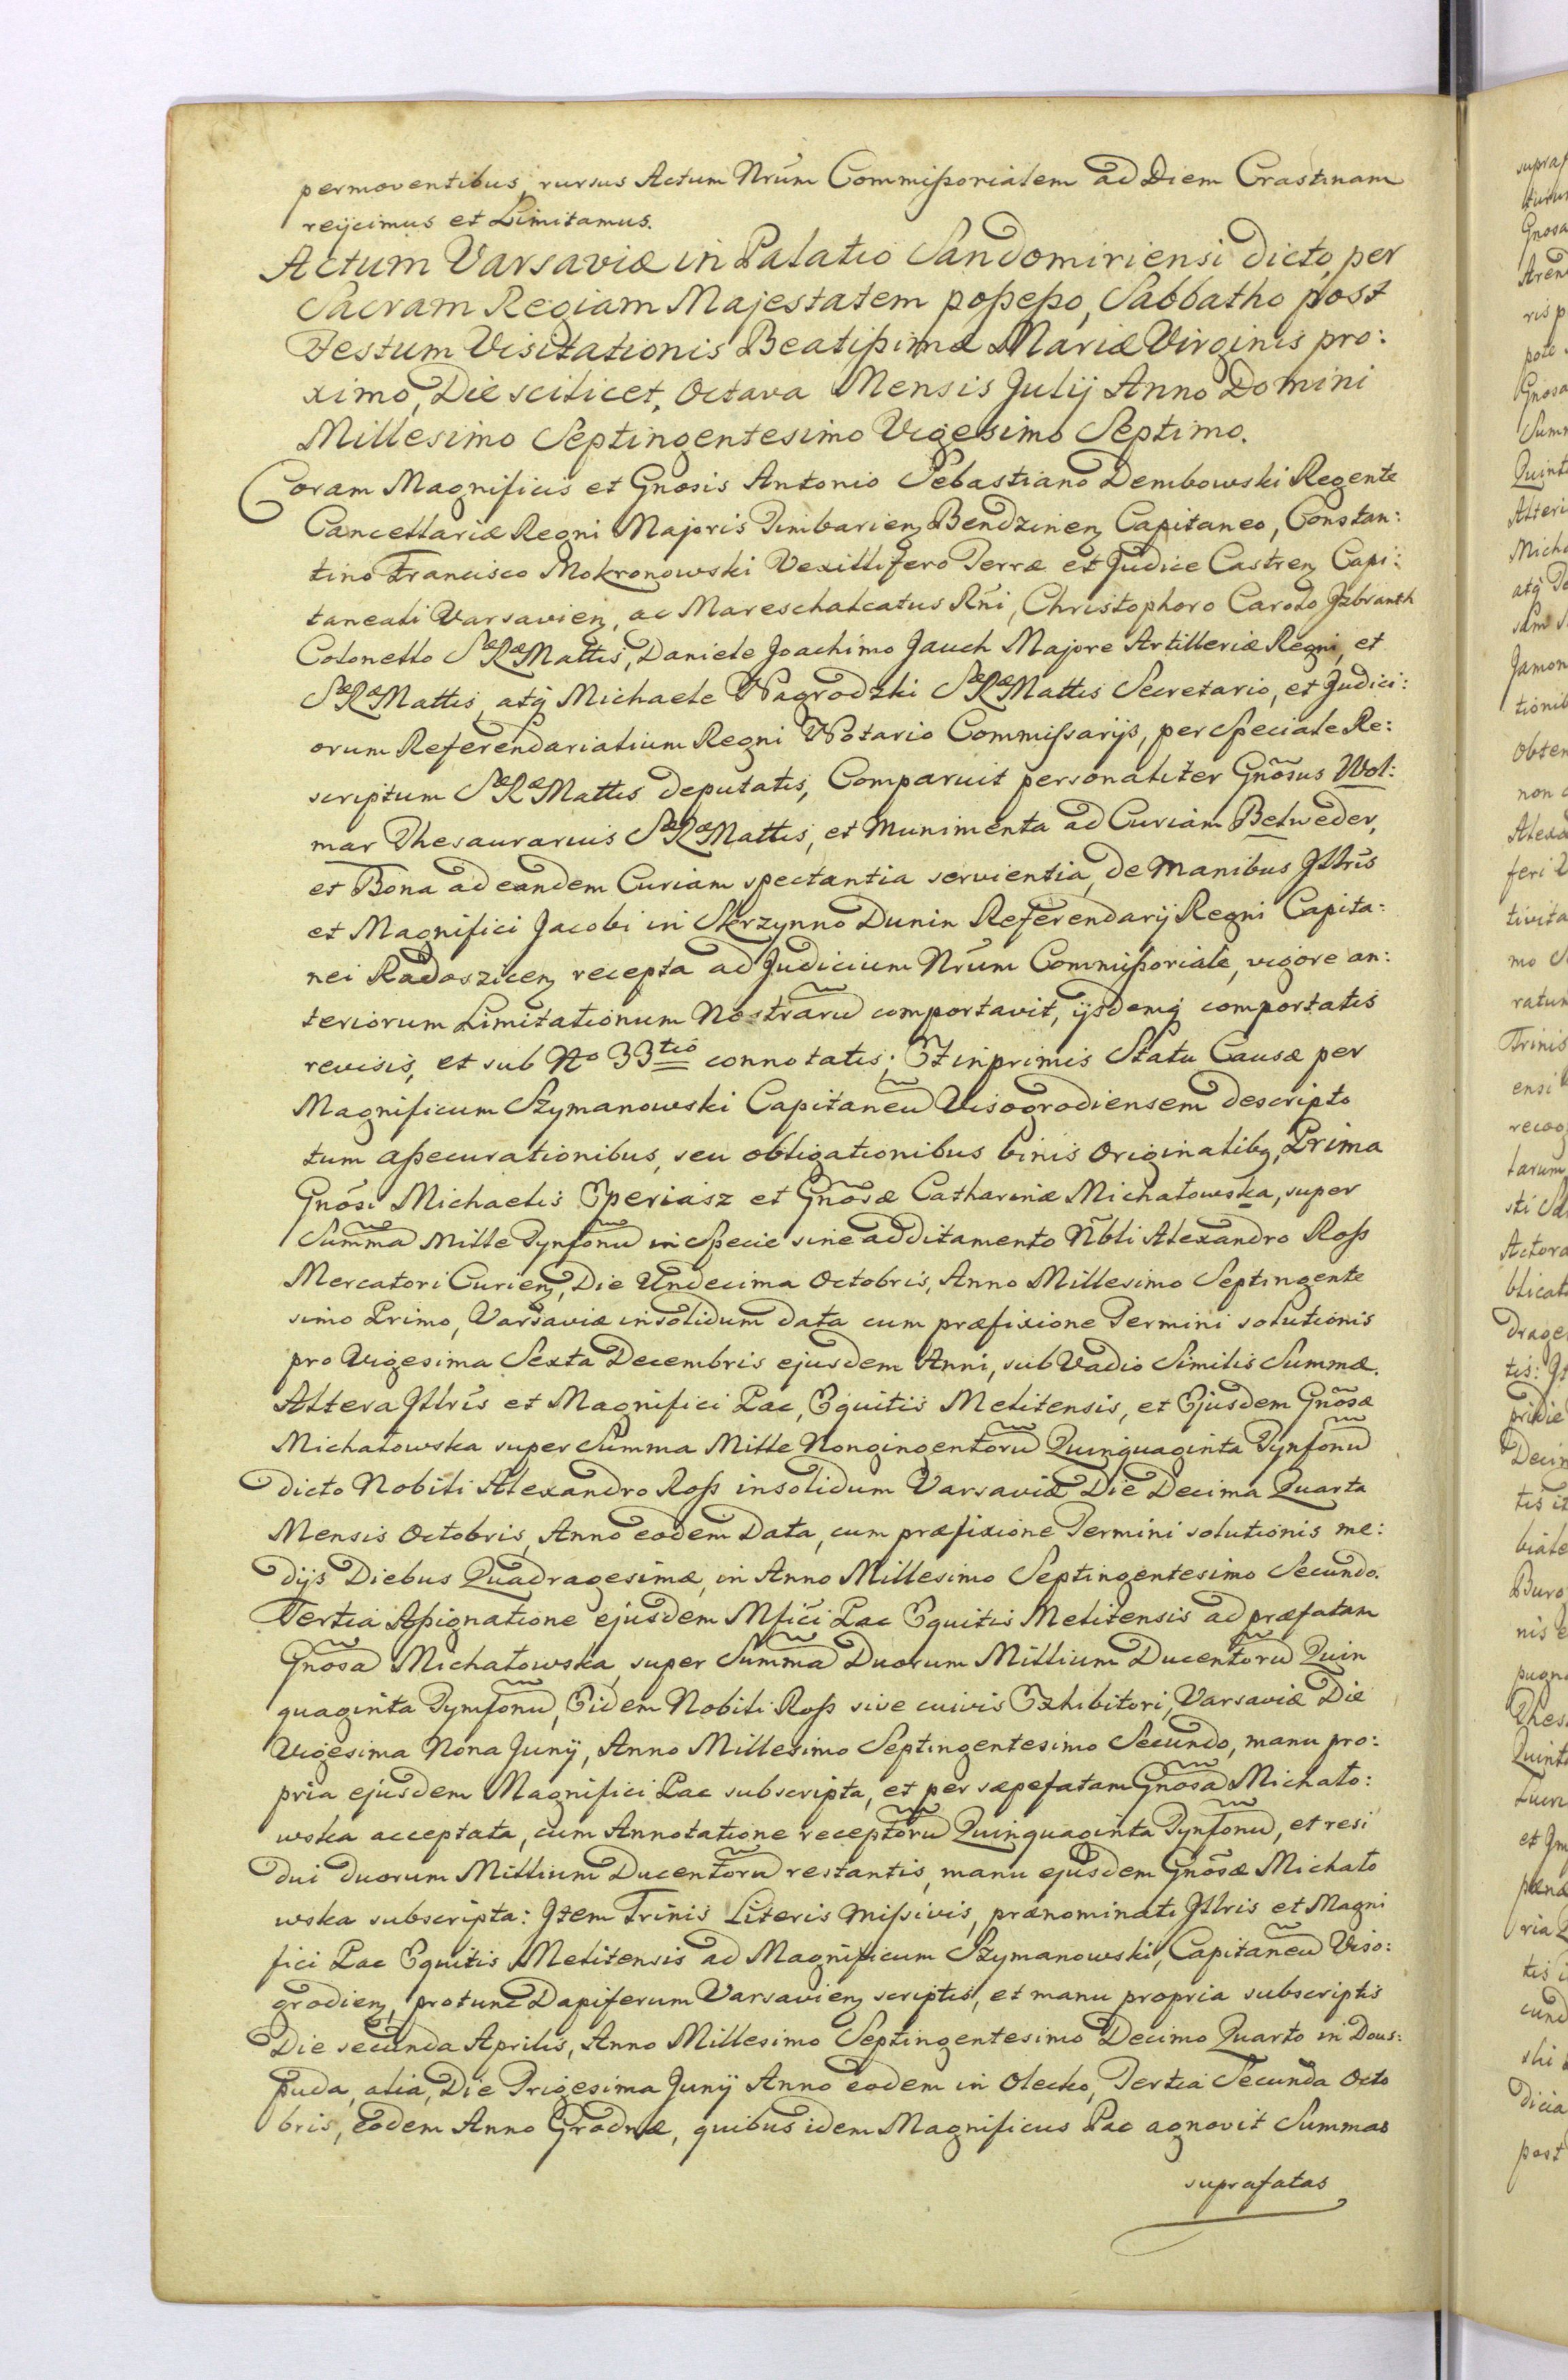 permoventibus, rursus Actum Nrum Commißorialem ad Diem Crastinam
reijcimus et Limitamus.
Actum Varsaviæ in Palatio Sandomiriensi dicto, per
Sacram Regiam Majestatem poßeßo, Sabbatho post
Festum Visitationis Beatißimæ Mariæ Virginis pro:
ximo, Die scilicet, Octava Mensis Julij Anno Domini
Millesimo Septingentesimo Vigesimo Septimo.
Coram Magnificis et Gnosis Antonio Sebastiano Dembowski Regente
Cancellariæ Regni Majoris Timbarien Bendzinen Capitaneo, Constan:
tino Francisco Mokronowski Vexillifero Terræ et Judice Castren Capi:
taneali Varsavien, ac Mareschalcatus Rni, Christophoro Carolo Jzbranth
Colonello SæRæMattis, Daniele Joachimo Jauch Majore Artilleriæ Regni, et
SæRæMattis, atq Michaele Nagrodzki SæRæMattis Secretario, et Judici:
orum Referendarialium Regni Notario Commißarijs, per Speciale Re:
scriptum SæRæMattis deputatis, Comparuit personaliter Gnõsus Wol:
mar Thesaurarius SæRæMattis, et Munimenta ad Curiam Belweder,
et Bona ad eandem Curiam spectantia servientia, de Manibus Jllris
et Magnifici Jacobi in Skrzynno Dunin Referendarij Regni Capita:
nei Radoszicen recepta ad Judicium Nrum Commißoriale, vigore an:
teriorum Limitationum Nostraru comportavit, ijsdemq comportatis
revisis, et sub No 33tio connotatis; Et inprimis Statu Causæ per
Magnificum Szymanowski Capitaneu Visogrodiensem descripto
tum aßecurationibus, seu obligationibus binis Originalibq, Prima
Gnõsi Michaelis Eperiasz et Gnõsæ Catharinæ Michałowska, super
Summa Mille Tynfonu in Specie sine additamento Nbli Alexandro Roß
Mercatori Curien, Die Undecima Octobris, Anno Millesimo Septingente
simo Primo, Varsaviæ insolidum data cum præfixione Termini solutionis
pro Vigesima Sexta Decembris ejusdem Anni, sub Vadio Similis Summæ.
Altera Jllris et Magnifici Pac, Equitis Melitensis, et Ejusdem Gnõsæ
Michałowska super Summa Mille Nongingentoru Quinquaginta Tynfonu
dicto Nobili Alexandro Roß insolidum Varsaviæ Die Decima Quarta
Mensis Octobris, Anno eodem Data, cum præfixione Termini solutionis me:
dijs Diebus Quadragesimæ, in Anno Millesimo Septingentesimo Secundo.
Tertia Aßignatione ejusdem Mfici Pac Equitis Melitensis ad præfatam
Gnosa Michałowska super Summa Duorum Millium Ducentoru Quin
quaginta Tymfonu, Eidem Nobili Roß sive cuivis Exhibitori, Varsaviæ Die
Vigesima Nona Junij, Anno Millesimo Septingentesimo Secundo, manu pro:
pria ejusdem Magnifici Pac subscripta, et per sæpefatam Gnosa Michało:
wska acceptata, cum Annotatione receptoru Quinquaginta Tynfonu, et resi
dui duorum Millium Ducentoru restantis, manu ejusdem Gnõsæ Michało
wska subscripta: Jtem Trinis Literis mißivis, prænominati Jllris et Magni
fici Pac Equitis Melitensis ad Magnificum Szymanowski, Capitaneu Viso:
grodien, protunc Dapiferum Varsavien scriptis, et manu propria subscriptis
Die secunda Aprilis, Anno Millesimo Septingentesimo Decimo Quarto in Dous:
puda, alia, Die Trigesima Junij Anno eodem in Olecko, Tertia Secunda Octo
bris, Eodem Anno Grodnæ, quibus idem Magnificus Pac agnovit Summas
suprafatas